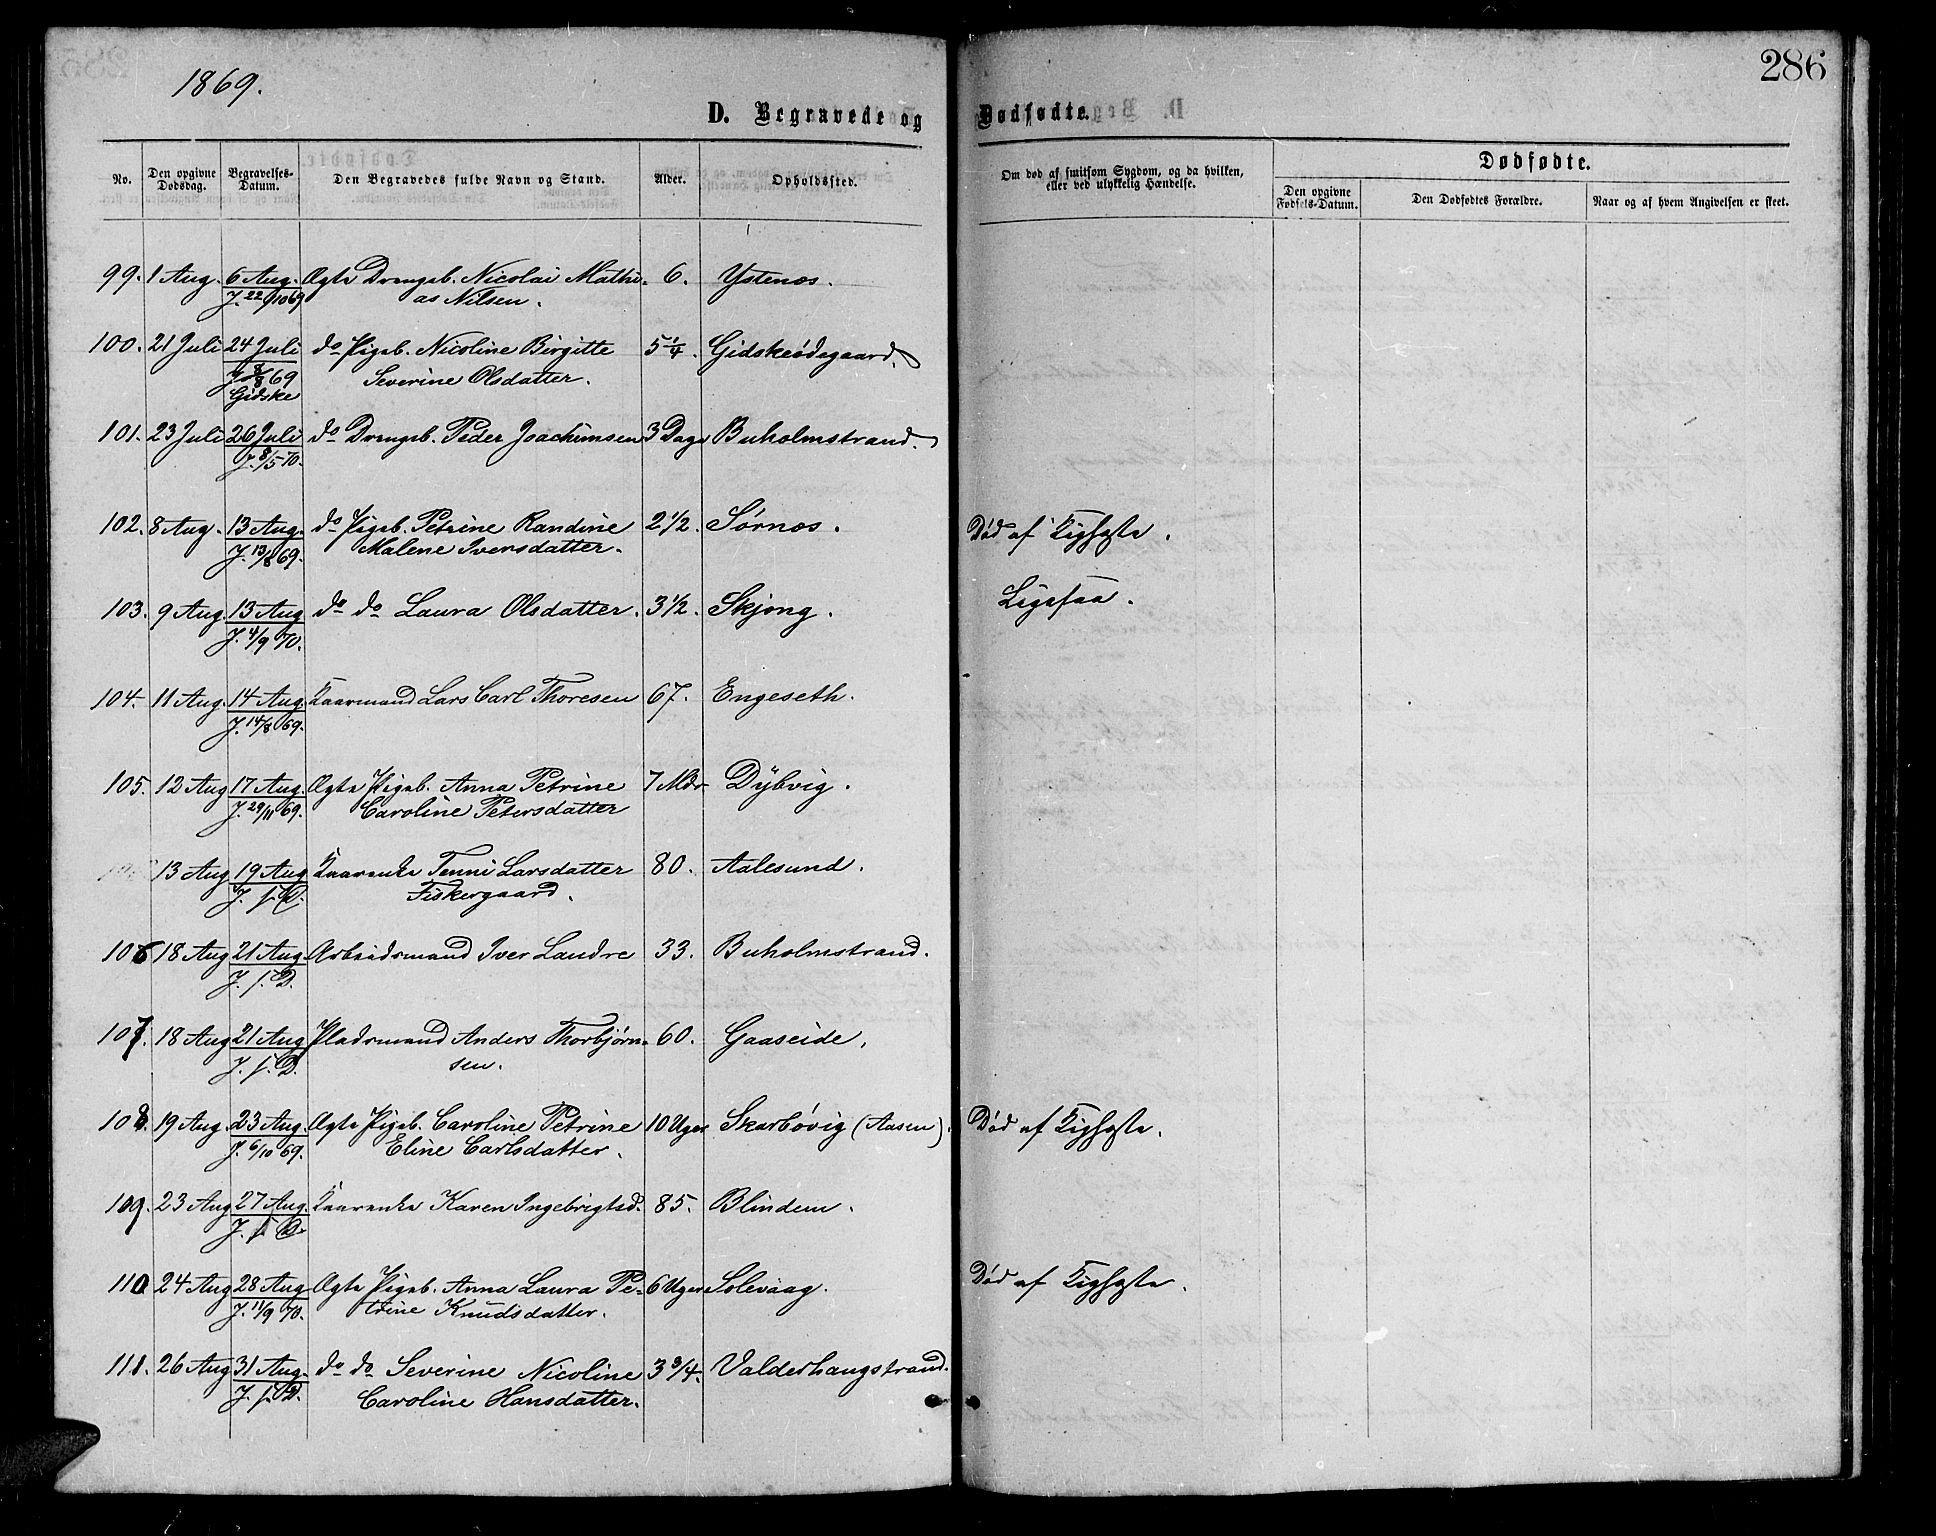 286
1869.
D. Begravede og Dødfødte.
No. Den opgivne Dødsdag. Begravelses-Datum. Den Begravedes fulde Navn og Stand. Alder. Opholdssted. Om død af smitsom Sygdom, og da hvilken, eller ved ulykkelig Hændelse. Dødfødte.
Den opgivne Fødsels-Datum. Den Dødfødtes Forældre. Naar og af hvem Angivelsen er skeet.
99. 1 Aug. 6 Aug. Ægte Drengeb. Nicolai Mathi- 6. Ystenæs.
J. 22/10 69 as Nilsen.
100. 21 Juli 24 Juli do Pigeb. Nicoline Birgitte 5 1/4. Gidskeødegaard.
J 8/8 69 Severine Olsdatter.
Gidske
101. 23 Juli 26 Juli do Drengeb. Peder Joachimsen 3 Dage Buholmstrand.
J. 8/5 70.
102. 8 Aug. 13 Aug. do Pigeb. Petrine Randine 2 1/2. Sørnæs. Død af Kighoste.
J. 13/8 69. Malene Iversdatter.
103. 9 Aug. 13 Aug do do Laura Olsdatter. 3 1/2. Skjong. Ligesaa.
J. 4/9 70.
104. 11 Aug. 14 Aug. Kaarmand Lars Carl Thoresen 67. Engeseth.
J. 14/8 69.
105. 12 Aug 17 Aug. Ægte Pigeb. Anna Petrine 7 Mdr. Dÿbvig.
J. 29/11 69. Caroline Petersdatter
13 Aug 19 Aug Kaarenke Tenni Larsdatter 80. Aalesund.
J. s. D. Fiskergaard.
106 18 Aug 21 Aug. Arbeidsmand Iver Landre 33. Buholmstrand.
J. s. D.
107. 18 Aug 21 Aug Pladsmand Anders Thorbjørn- 60. Gaaseide.
J. s. D. sen.
108. 19 Aug. 23 Aug. Ægte Pigeb. Caroline Petrine 10 Uger Skarbøvig (Aasen). Død af Kighoste.
J. 6/10 69. Eline Carlsdatter.
109. 23 Aug 27 Aug. Kaarenke Karen Ingebrigtsd. 85. Blindem.
J. s. D.
110 24 Aug 28 Aug Ægte Pigeb. Anna Laura Pe- 6 Uger Solevaag. Død af Kighoste.
J. 11/9 70. trine Knudsdatter.
111. 26 Aug 31 Aug. do do Severine Nicoline 3 3/4. Valderhaugstrand.
J. s. D. Caroline Hansdatter.